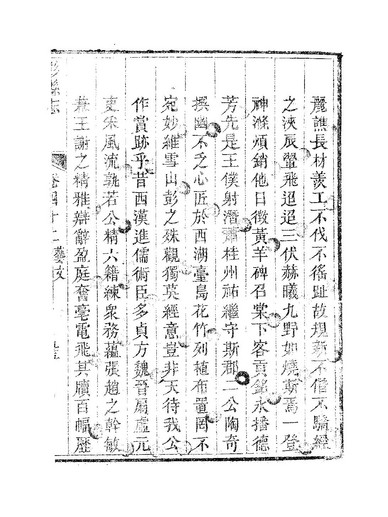 麗譙長材羨工不伐不徭趾故規新不僭不驕經
之浹辰翬飛迢迢三伏赫曦九野如燒斯焉一登
神滌煩銷他日徵黃羊碑召棠下客貢銘永播德
芳先是王僕射潛蕭桂州祐繼守斯郡二公陶奇
撰幽不乏心匠於西湖臺島花竹列植布置罔不
宛妙維雪山彭之殊觀獨莫經意豈非天待我公
作賞跡乎昔西漢進儒術臣多貞方魏晉扇虛元
吏宋風流孰若公精六籍練衆務蘊張趙之幹敏
兼王謝之精雅辯辭盈庭奮毫電飛其牘百幅歷
縣志
卷四十二藝文